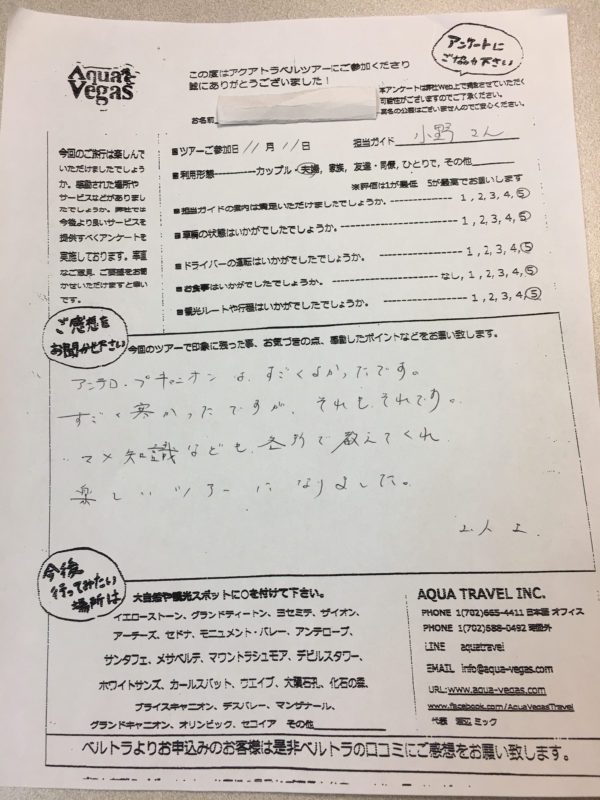 アンケートに
ご協力下さい
Aqua
Vegas
この度はアクアトラベルツアーにご参加くださり
誠にありがとうございました！
本アンケートは弊社Web上で掲載させていただく
可能性がございますのでご了承ください。
実名の公開はございませんのでご安心ください。
お名前
■ツアーご参加日 11 月 11 日
担当ガイド 小野 さん
■利用形態----------カップル・夫婦, 家族, 友達・同僚, ひとりで, その他
※評価は1が最低 5が最高でお願いします
■担当ガイドの案内は満足いただけましたでしょうか。 1 , 2, 3, 4, 5
■車輌の状態はいかがでしたでしょうか。 1 , 2, 3, 4, 5
■ドライバーの運転はいかがでしたでしょうか。 1 , 2, 3, 4, 5
■お食事はいかがでしたでしょうか。 なし, 1, 2, 3, 4, 5
■観光ルートや行程はいかがでしたでしょうか。 1 , 2, 3, 4, 5
今回のご旅行は楽しんで
いただけましたでしょう
か。感動された場所や
サービスなどがありまし
たでしょうか。弊社では
今後より良いサービスを
提供すべくアンケートを
実施しております。率直
なご意見、ご要望をお聞
かせいただけますと幸い
です。
ご感想を
お聞かせ下さい
今回のツアーで印象に残った事、お気づきの点、感動したポイントなどをお願い致します。
アンテロープキャニオンは、すごくよかったです。
すごく寒かったですが、それも、それです。
マメ知識なども、各所で教えてくれ
楽しいツアーになりました。
今後
行ってみたい
場所は
大自然や観光スポットに○を付けて下さい。
イエローストーン、グランドティートン、ヨセミテ、ザイオン、
アーチーズ、セドナ、モニュメント・バレー、アンテロープ、
サンタフェ、メサベルデ、マウントラシュモア、デビルスタワー、
ホワイトサンズ、カールスバット、ウエイブ、大隕石孔、化石の森、
ブライスキャニオン、デスバレー、マンザナール、
グランドキャニオン、オリンピック、セコイア その他
AQUA TRAVEL INC.
PHONE 1(702)665-4411 日本語 オフィス
PHONE 1(702)588-0492 時間外
LINE aquatravel
EMAIL info@aqua-vegas.com
URL:www.aqua-vegas.com
www.facebook.com/AquaVegasTravel
代表 渡辺 ミック
ベルトラよりお申込みのお客様は是非ベルトラの口コミにご感想をお願い致します。